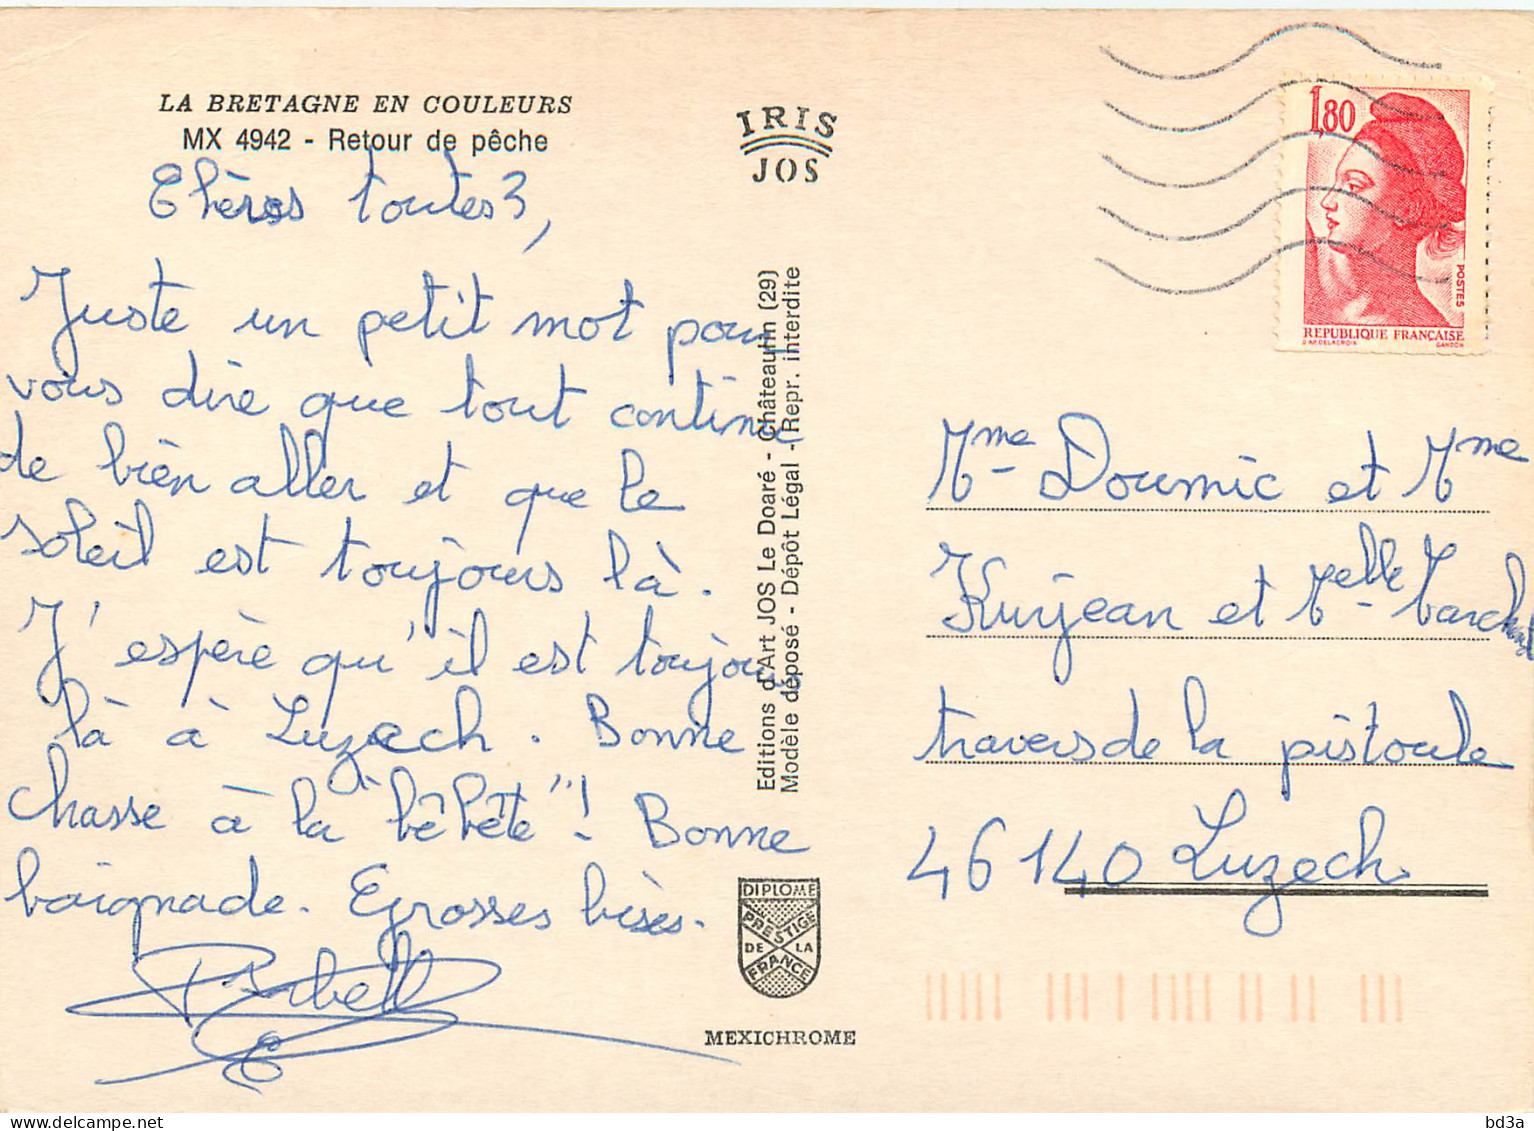 LA BRETAGNE EN COULEURS
MX 4942 - Retour de pêche
Chères toutes 3,
Juste un petit mot pour
vous dire que tout continue
de bien aller et que le
soleil est toujours là.
J'espère qu'il est toujours
là à Luzech. Bonne
chasse à la "bêbête"! Bonne
baignade. Grosses bises.
IRIS
JOS
Editions d'Art JOS Le Doaré - Châteaulin (29)
Modèle déposé - Dépôt Légal - Repr. interdite
DIPLOME
PRESTIGE
DE LA
FRANCE
MEXICHROME
1,80
POSTES
REPUBLIQUE FRANÇAISE
D'AP. DELACROIX GANDON
Mme Doumic et Mme
Kurjean et Melle
travers de la pistoule
46140 Luzech
bd3a